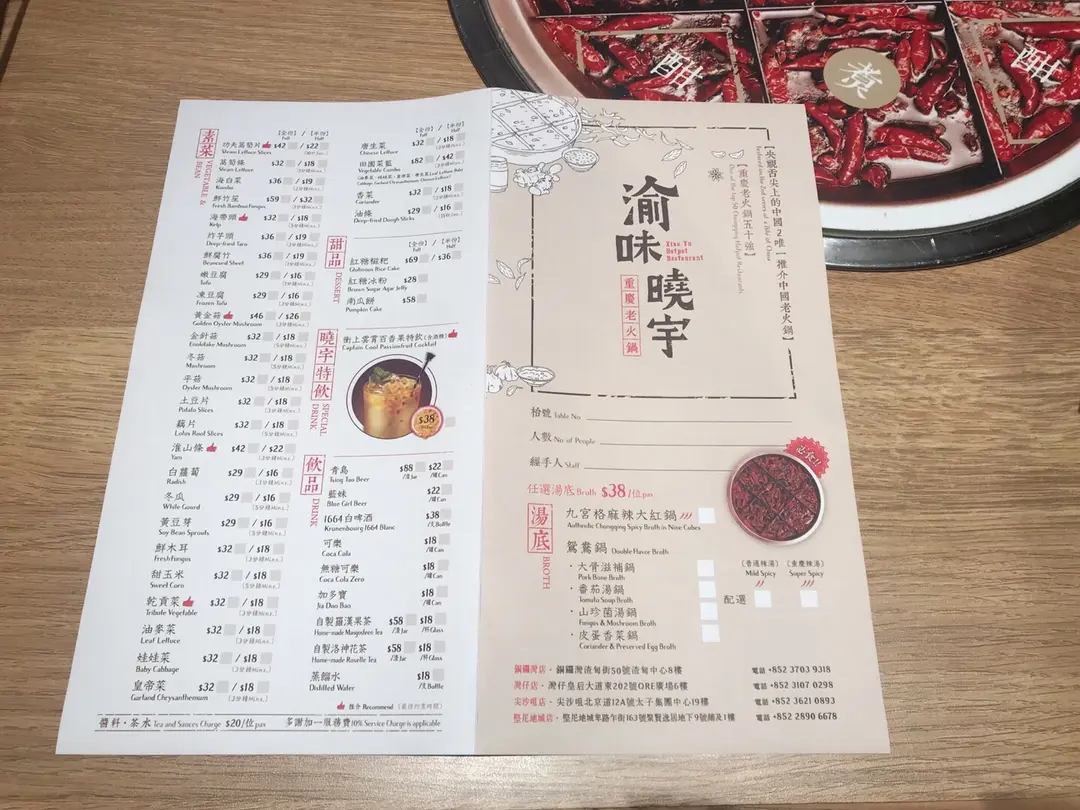 素菜 VEGETABLE & BEAN
[全份] Full / [半份] Half
功夫萵筍片 $42 / $22
Steam Lettuce Slices
萵筍條 $32 / $18
Steam Lettuce
海白菜 $36 / $19
Kombu
鮮竹笙 $59 / $32
Fresh Bamboo Fungus
海帶頭 $32 / $18
Kelp
炸芋頭 $36 / $19
Deep-fried Taro
鮮腐竹 $36 / $19
Beancurd Sheet
嫩豆腐 $29 / $16
Tofu
凍豆腐 $29 / $16
Frozen Tofu
黃金菇 $46 / $26
Golden Oyster Mushroom
金針菇 $32 / $18
Enokitake Mushroom
冬菇 $32 / $18
Mushroom
平菇 $32 / $18
Oyster Mushroom
土豆片 $32 / $18
Potato Slices
藕片 $32 / $18
Lotus Root Slices
淮山條 $42 / $22
Yam
白蘿蔔 $29 / $16
Radish
冬瓜 $29 / $16
White Gourd
黃豆芽 $29 / $16
Soy Bean Sprouts
鮮木耳 $32 / $18
Fresh Fungus
甜玉米 $32 / $18
Sweet Corn
乾貢菜 $32 / $18
Tribute Vegetable
油麥菜 $32 / $18
Leaf Lettuce
娃娃菜 $32 / $18
Baby Cabbage
皇帝菜 $32 / $18
Garland Chrysanthemum
醬料・茶水 Tea and Sauces Charge $20/位pax
多謝加一服務費 10% Service Charge is applicable
[全份] Full / [半份] Half
唐生菜 $32 / $18
Chinese Lettuce
田園菜籃 $82 / $42
Vegetable Combo
香菜 $32 / $18
Coriander
油條 $29 / $16
Deep-fried Dough Sticks
甜品 DESSERT
[全份] Full / [半份] Half
紅糖糍粑 $69 / $36
Glutinous Rice Cake
紅糖冰粉 $28
Brown Sugar Agar Jelly
南瓜餅 $58
Pumpkin Cake
曉宇特飲 SPECIAL DRINK
衝上雲霄百香果特飲(含酒精)
Captain Cool Passionfruit Cocktail
$38
飲品 DRINK
青島 $88 $22
Tsing Tao Beer /渣Jar /罐Can
藍妹 $22
Blue Girl Beer /罐Can
1664白啤酒 $38
Kronenbourg 1664 Blanc /支Bottle
可樂 $18
Coca Cola /罐Can
無糖可樂 $18
Coca Cola Zero /罐Can
加多寶 $18
Jia Duo Bao /罐Can
自製羅漢果茶 $58 $18
Home-made Mangosteen Tea /渣Jar /杯Glass
自製洛神花茶 $58 $18
Home-made Roselle Tea /渣Jar /杯Glass
蒸餾水 $18
Distilled Water /支Bottle
推介 Recommend
酣 煮 酣
【央視舌尖上的中國2唯一推介中國老火鍋】
【重慶老火鍋五十強】
Out of the top 50 Chongqing Hotpot Restaurants
渝味曉宇
Xiao Yu Hotpot Restaurant
重慶老火鍋
枱號 Table No
人數 No of People
經手人 Staff
任選湯底 Broth $38/位pax
必食!!
湯底 BROTH
九宮格麻辣大紅鍋
Authentic Chongqing Spicy Broth in Nine Cubes
鴛鴦鍋 Double Flavor Broth
・大骨滋補鍋
Pork Bone Broth
・番茄湯鍋
Tomato Soup Broth
・山珍菌湯鍋
Fungus & Mushroom Broth
・皮蛋香菜鍋
Coriander & Preserved Egg Broth
配選
(普通辣湯) Mild Spicy
(重慶辣湯) Super Spicy
銅鑼灣店・銅鑼灣渣甸街50號渣甸中心8樓 電話 +852 3703 9318
灣仔店・灣仔皇后大道東202號QRE廣場6樓 電話 +852 3107 0298
尖沙咀店・尖沙咀北京道12A號太子集團中心19樓 電話 +852 3621 0893
堅尼地城店・堅尼地城卑路乍街163號聚賢逸居地下9號舖及1樓 電話 +852 2890 6678